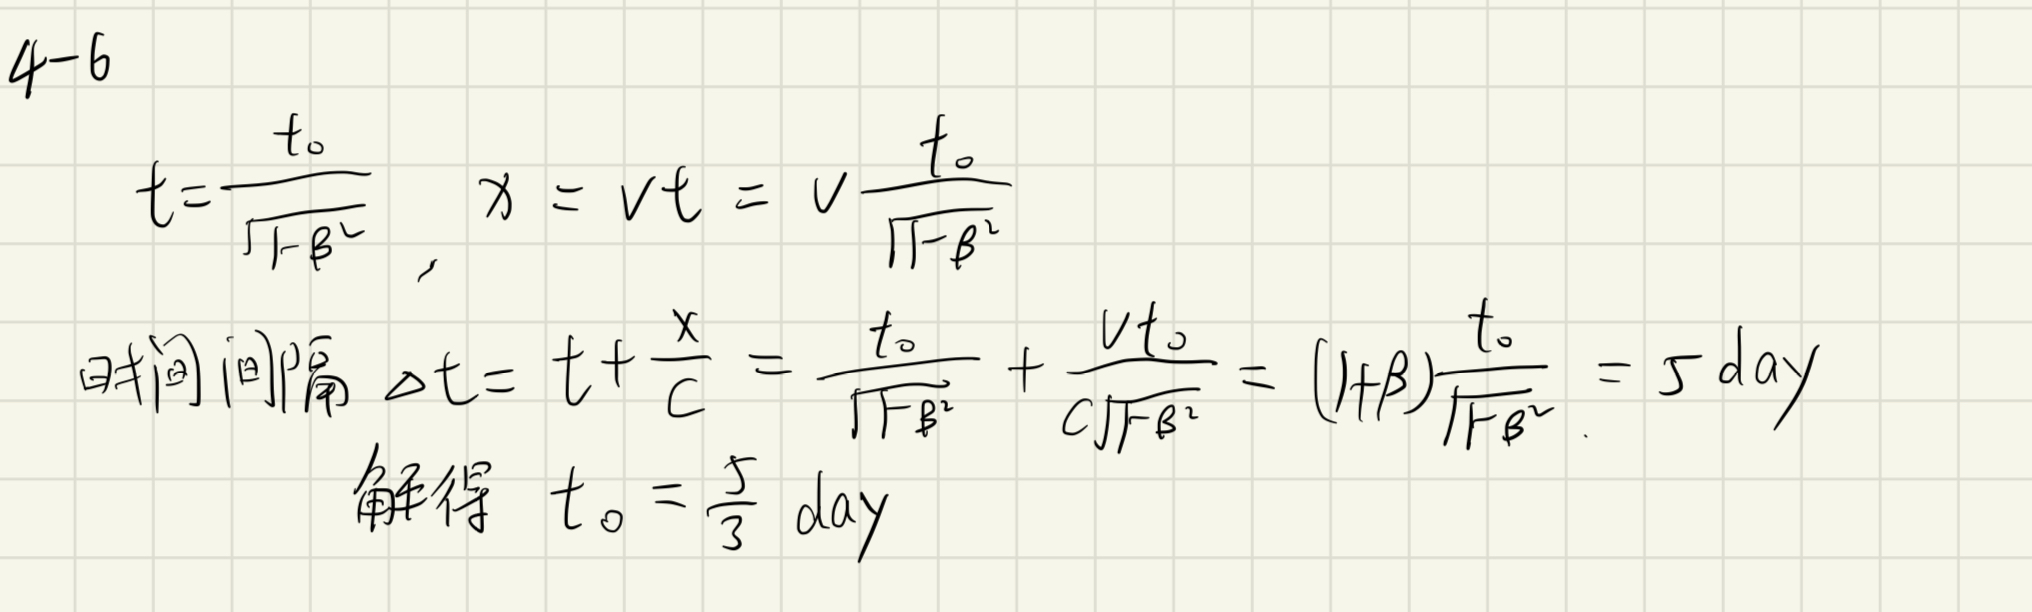 4-6
t = \frac{t_0}{\sqrt{1-β^2}} , x = vt = v \frac{t_0}{\sqrt{1-β^2}}
时间间隔 △t = t + \frac{x}{c} = \frac{t_0}{\sqrt{1-β^2}} + \frac{vt_0}{c\sqrt{1-β^2}} = (1+β) \frac{t_0}{\sqrt{1-β^2}} = 5 day
解得 t_0 = \frac{5}{3} day